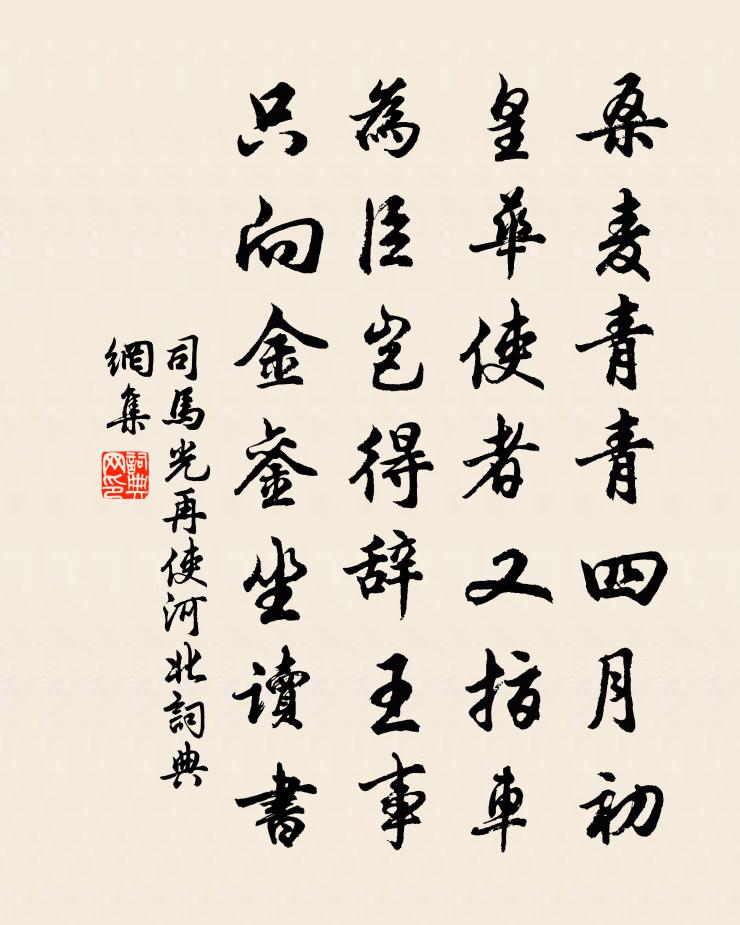 桑麦青青四月初
皇華使者又指車
為臣豈得辞王事
只向金銮坐讀書
司馬光再使河北詞典
網集
詞典
网印